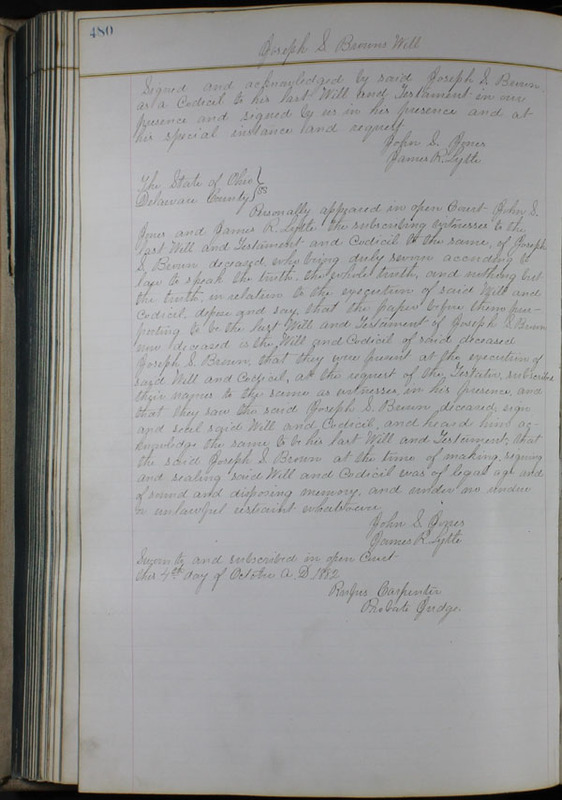 480
Joseph S. Browns Will
Signed and acknowledged by said Joseph S. Brown,
as a Codicil to his last Will and Testament in our
presence and signed by us in his presence and at
his special instance and request
John S. Jones
James R. Lytle
The State of Ohio }
Delaware County } SS
Personally appeared in open Court John S.
Jones and James R. Lytle the subscribing witnesses to the
last Will and Testament and Codicil to the same, of Joseph
S. Brown deceased, who being duly sworn according to
law to speak the truth, the whole truth, and nothing but
the truth, in relation to the execution of said Will and
Codicil, depose and say, that the paper before them pur-
porting to be the last Will and Testament of Joseph S. Brown
now deceased is the Will and Codicil of said deceased
Joseph S. Brown, that they were present at the execution of
said Will and Codicil, at the request of the Testator, subscribed
their names to the same as witnesses, in his presence, and
that they saw the said Joseph S. Brown, deceased, sign
and seal said Will and Codicil, and heard him ac-
knowledge the same to be his last Will and Testament, that
the said Joseph S. Brown at the time of making, signing
and sealing said Will and Codicil was of legal age and
of sound and disposing memory, and under no undue
or unlawful restraint whatsoever
John S. Jones
James R. Lytle
Sworn to and subscribed in open Court
this 4th day of October A. D. 1882
Rufus Carpenter
Probate Judge